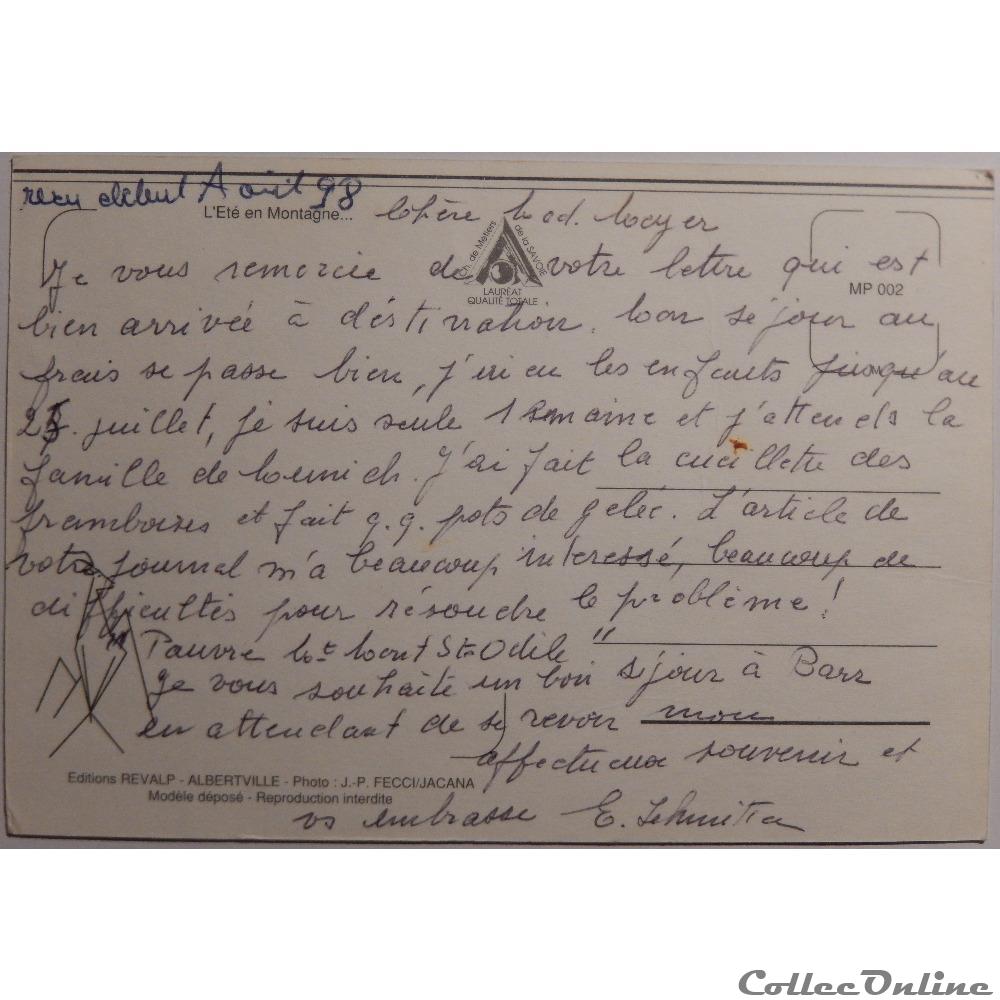 reçu début Août 98
L'Eté en Montagne...
Chère Mad. Mayer
Ch. de Métiers de la SAVOIE
LAURÉAT
QUALITÉ TOTALE
MP 002
Je vous remercie de votre lettre qui est
bien arrivée à déstination. Mon séjour au
frais se passe bien, j'ai eu les enfants jusqu'au
25. juillet, je suis seule 1 semaine et j'attends la
famille de Munich. J'ai fait la cueillette des
framboises et fait q.q. pots de gelée. L'article de
votre journal m'a beaucoup interessé, beaucoup de
difficultés pour résoudre le problème!
Pauvre Mt Mont Ste Odile "
Je vous souhaite un bon séjour à Barr
en attendant de se revoir mon
affectueux souvenir et
Editions REVALP - ALBERTVILLE - Photo : J.-P. FECCI/JACANA
Modèle déposé - Reproduction interdite
vs embrasse E.
CollecOnline